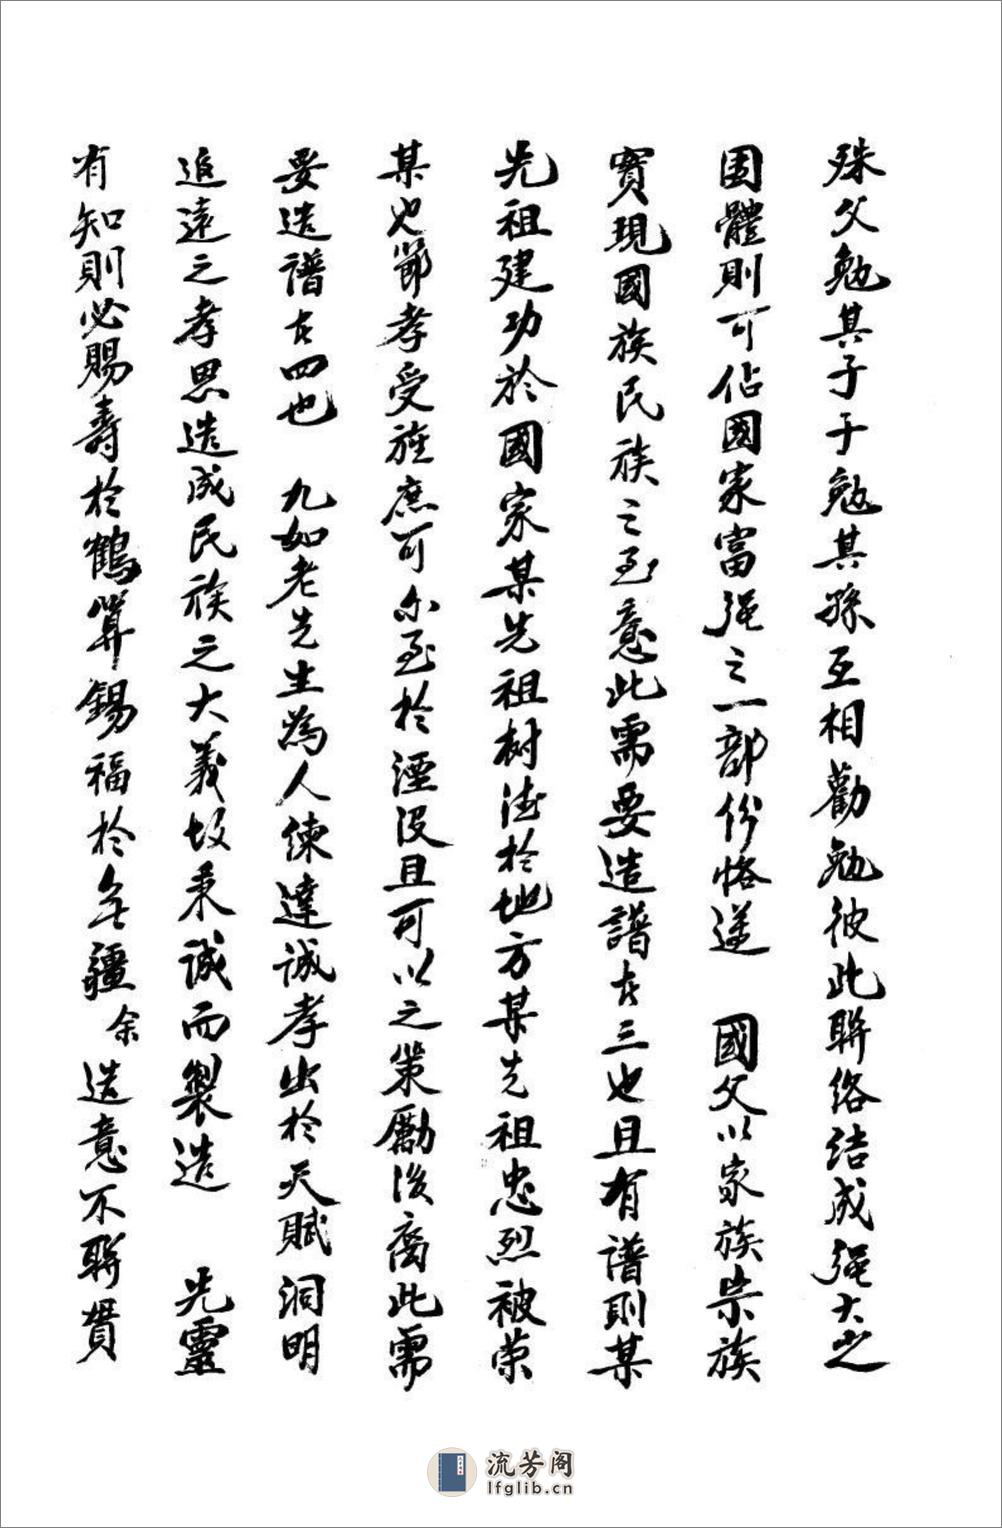 殊父勉其子子勉其孫互相勸勉彼此聯络结成强大之
团體則可佔國家富强之一部份恪遵 國父以家族宗族
實現國族民族之至意此需要造譜者三也且有譜則某
先祖建功於國家某先祖树德於地方某先祖忠烈被荣
某也節孝受旌庶可不至於湮没且可以之策勵後裔此需
要造譜者四也 九如老先生為人練達誠孝出於天賦洞明
追遠之孝思造成民族之大義故秉誠而製造 先靈
有知則必賜壽於鶴算錫福於無疆余造意不聯貫
流芳阁
lfglib.cn